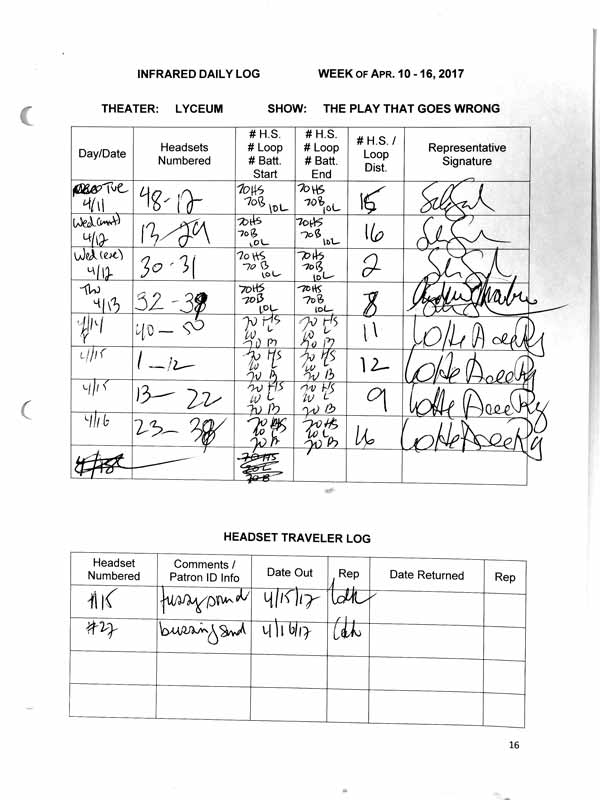 INFRARED DAILY LOG WEEK OF APR. 10 - 16, 2017
THEATER: LYCEUM SHOW: THE PLAY THAT GOES WRONG
Day/Date
Headsets Numbered
# H.S. # Loop # Batt. Start
# H.S. # Loop # Batt. End
# H.S. / Loop Dist.
Representative Signature
Tue 4/11 48-12 70HS 70B 10L 70HS 70B 10L 15
Wed (mat) 4/12 13-29 70HS 70B 10L 70HS 70B 10L 16
Wed (eve) 4/12 30-31 70HS 70B 10L 70HS 70B 10L 2
Thu 4/13 32-39 70HS 70B 10L 70HS 70B 10L 8
4/14 40-50 70 HS 10 L 70 B 70 HS 10 L 70 B 11
4/15 1-12 70 HS 10 L 70 B 70 HS 10 L 70 B 12
4/15 13-22 70 HS 10 L 70 B 70 HS 10 L 70 B 9
4/16 23-38 70 HS 10 L 70 B 70 HS 10 L 70 B 16
HEADSET TRAVELER LOG
Headset Numbered
Comments / Patron ID Info
Date Out
Rep
Date Returned
Rep
#15 fuzzy sound 4/15/17
#27 buzzing sound 4/16/17
16